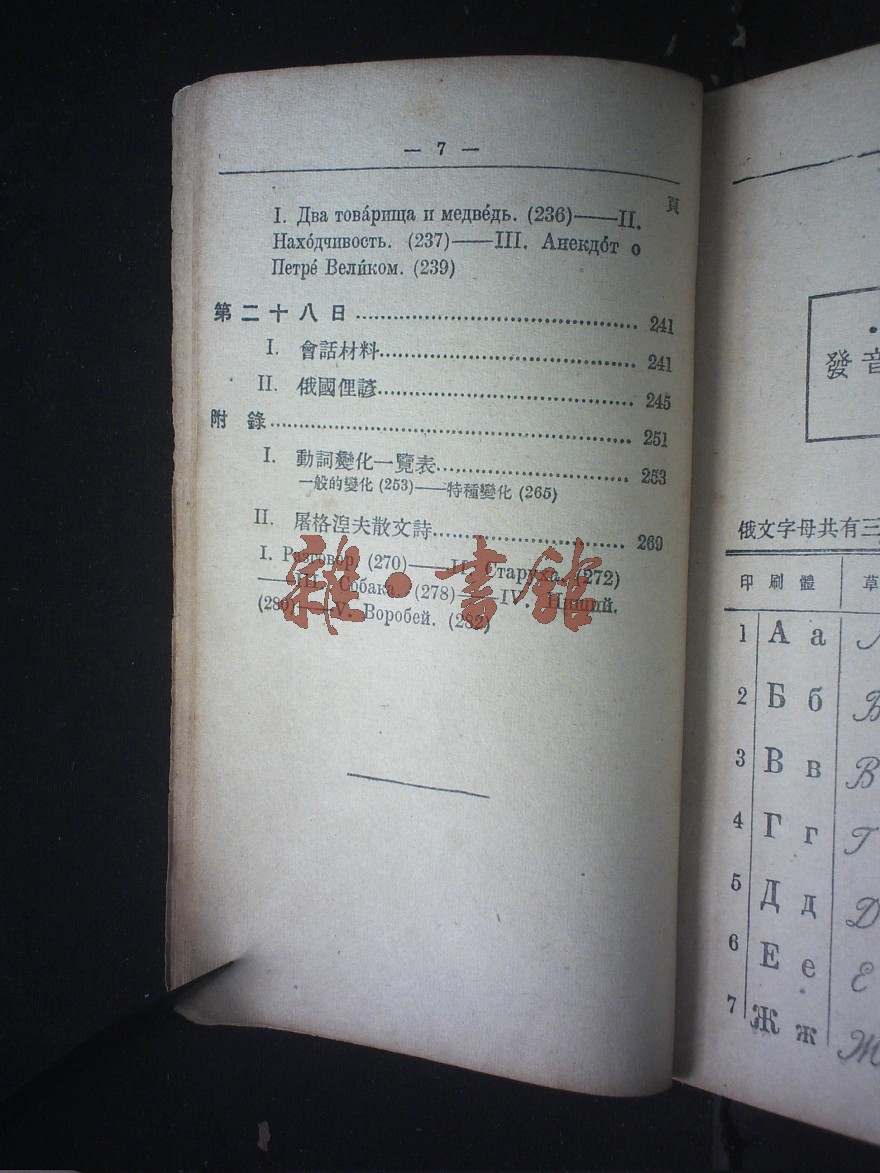 — 7 —
頁
I. Два това́рища и медве́дь. (236)——II.
Нахо́дчивость. (237)——III. Анекдо́т о
Петре́ Вели́ком. (239)
第二十八日 241
I. 會話材料 241
II. 俄國俚諺 245
附錄 251
I. 動詞變化一覽表 253
一般的變化 (253)——特種變化 (265)
II. 屠格湼夫散文詩 269
I. Разговор. (270)——II. Старуха. (272)
——III. Собака. (278)——IV. Нищий.
(280)——V. Воробей. (282)
雜·書館
發音
俄文字母共有三
印刷體 草
1 А а
2 Б б
3 В в
4 Г г
5 Д д
6 Е е
7 Ж ж